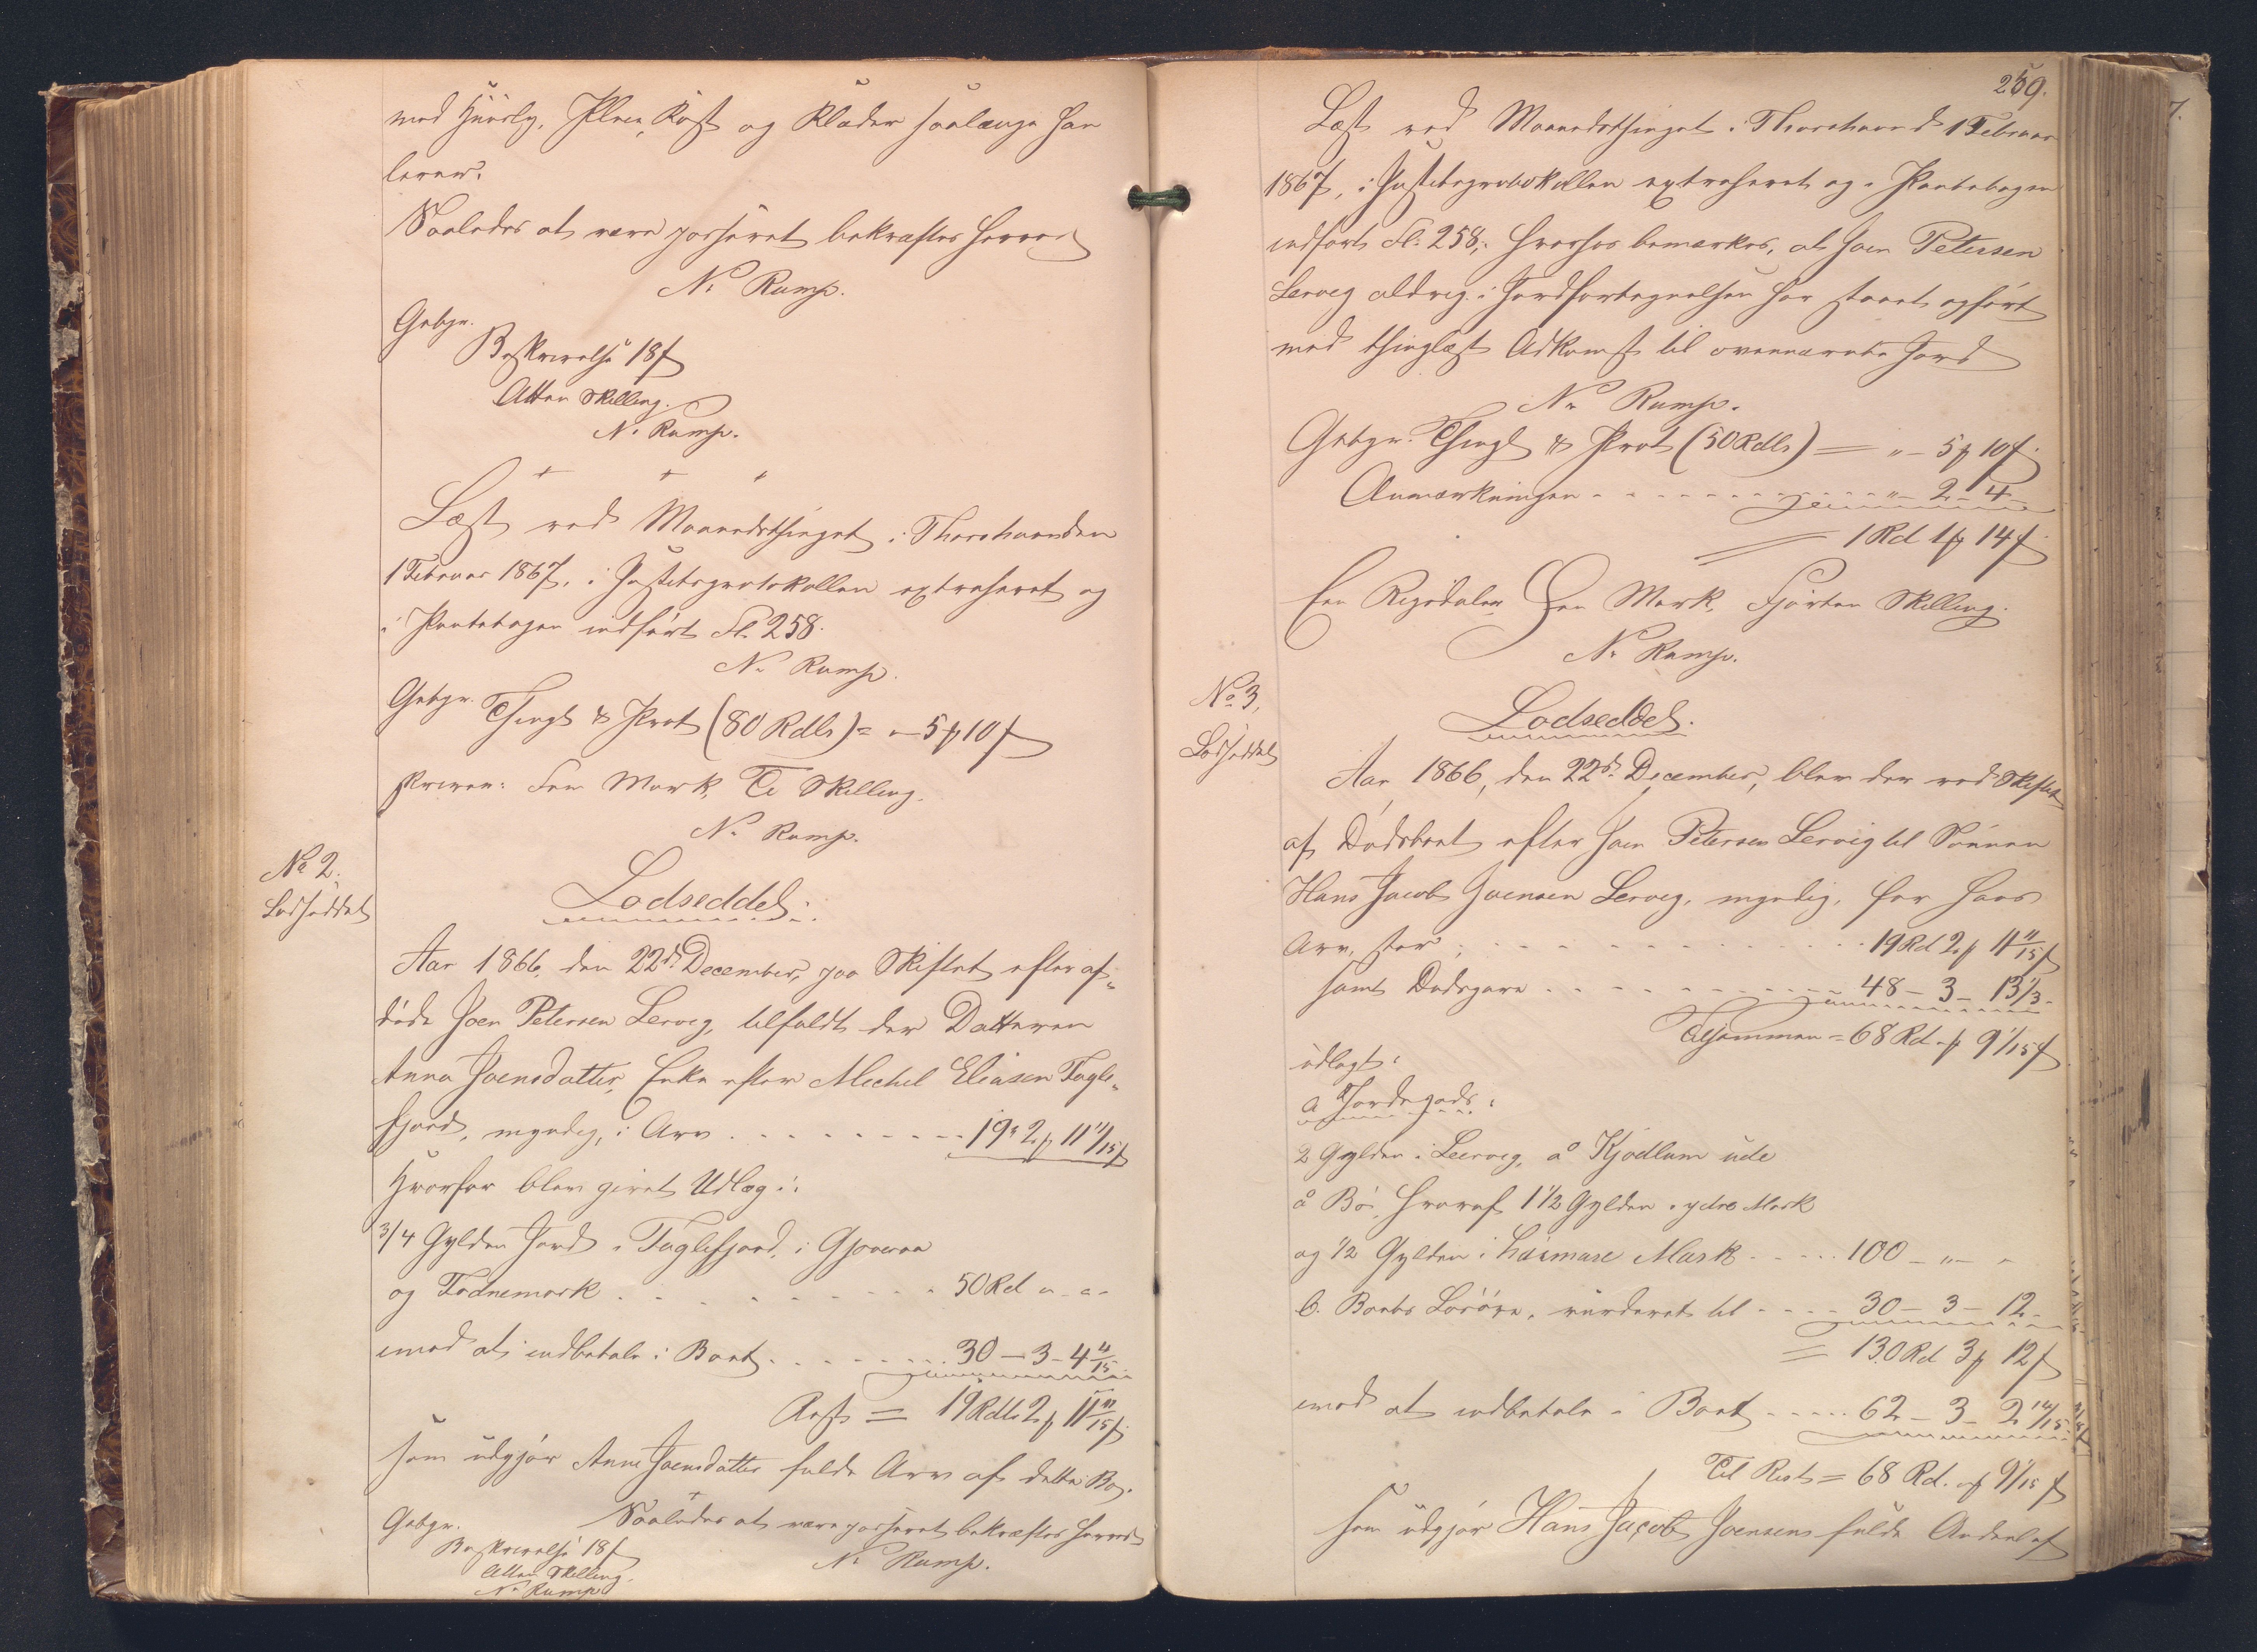 med Huusly, Pleie, Kost og Klæder saalænge han
lever.
Saaledes at være passeret bekræftes herved
N. Rump.
Gebyr.
Beskrivelse 18 ß
Atten Skilling.
N. Rump.
Læst ved Maanedsthinget i Thorshavn den
1 Februar 1867, i Justitsprotokollen extraheret og
i Pantebogen indført Fl. 258.
N. Rump.
Gebyr. Thingl & Prot (80 Rdlr) = „ – 5 ß 10 ß
skriver: Fem Mark, Ti Skilling.
N. Rump.
No 2.
Lodseddel
Lodseddel.
Aar 1866, den 22de December, paa Skiftet efter af-
døde Joen Petersen Lervig, tilfaldt der Datteren
Anna Joensdatter, Enke efter Mechel Eliasen Fugle-
fjord, myndig, i Arv . . . . 19 r 2 ß 11 11/15 ß
Hvorfor blev givet Udlæg i:
3/4 Gylden Jord i Fuglefjord, i Gjoveraa
og Todnemork . . . . 50 Rd „ - „ -
imod at indbetale i Boet . . . . 30 – 3 – 4 4/15
Rest = 19 Rdlr 2 ß 11 11/15 ß.
som udgjør Anne Joensdatter fulde Arv af dette Bo.
Saaledes at være passeret bekræftes herved
Gebyr.
Beskrivelse 18 ß
Atten Skilling.
N. Rump
N. Rump.
259.
Læst ved Maanedsthinget i Thorshavn d 1 Februar
1867, i Justitsprotokollen extraheret og i Pantebogen
indført Fl: 258; hvorhos bemærkes, at Joen Petersen
Lervig aldrig i Jordfortegnelsen har staaet opført
med thinglæst Adkomst til ovennævnte Jord
N. Rump.
Gebyr. Thingl & Prot (50 Rdlr) = „ – 5 ß 10 ß.
Anmærkningen . . . . „ – 2 – 4 –
1 Rd 1 ß 14 ß
Een Rigsdaler Een Mark, Fjorten Skilling.
N. Rump.
No 3,
Lodseddel
Lodseddel.
Aar 1866, den 22de December, blev der ved Skiftet
af Dødsboet efter Joen Petersen Lervig til Sønnen
Hans Jacob Joensen Lervig, myndig, for hans
Arv, stor: . . . . 19 Rd 2 ß 11 11/15 ß
samt Dødsgave . . . . 48 – 3 – 13 1/3 –
Tilsammen = 68 Rd „ ß 9 1/15 ß
udlagt:
a Jordegods:
2 Gylden i Leervig, å Kjødlum ude
å Bø, hvoraf 1 1/2 Gylden i ydre Mark
og 1/2 Gylden i haimare Mark . . . . 100 – „ – „
b. Boets Løsøre, vurderet til . . . . 30 – 3 – 12 –
= 130 Rd 3 ß 12 ß
imod at indbetale i Boet . . . . 62 – 3 – 2 14/15
Til Rest = 68 Rd. „ ß 9 1/15 ß
som udgjør Hans Jacob Joensens fulde Andeel af